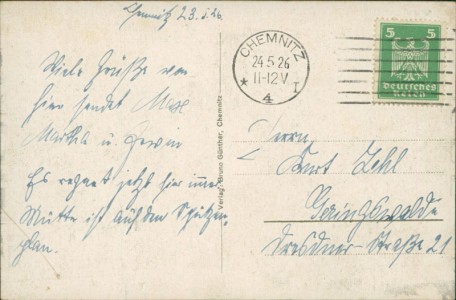 Chemnitz 23.5.26.
Viele Grüße von
hier sendet
Martha u. Erwin
Es regnet jetzt hier immer
Mutter ist auf dem Spitzen-
plan.
Verlag: Bruno Günther, Chemnitz
CHEMNITZ
24.5.26
11-12V
* 4 I
5 5
Deutsches
Reich
Herrn
Kurt Zehl
Geringswalde
Dresdner-Straße 21